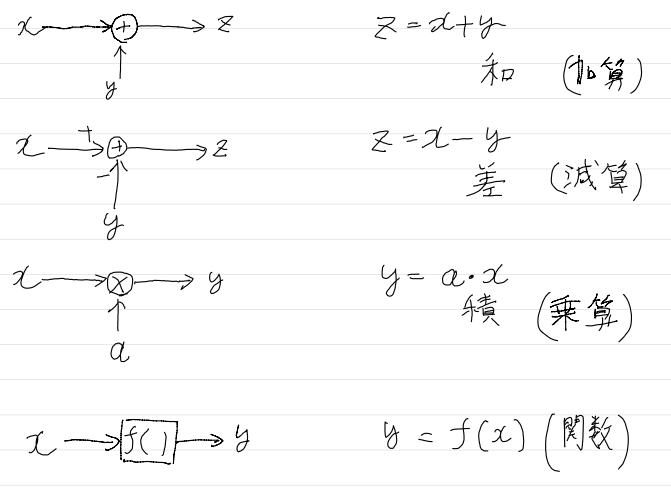 x + z z = x + y
y 和 (加算)
x + + z z = x - y
- 差 (減算)
y
x × y y = a・x
a 積 (乗算)
x f( ) y y = f(x) (関数)